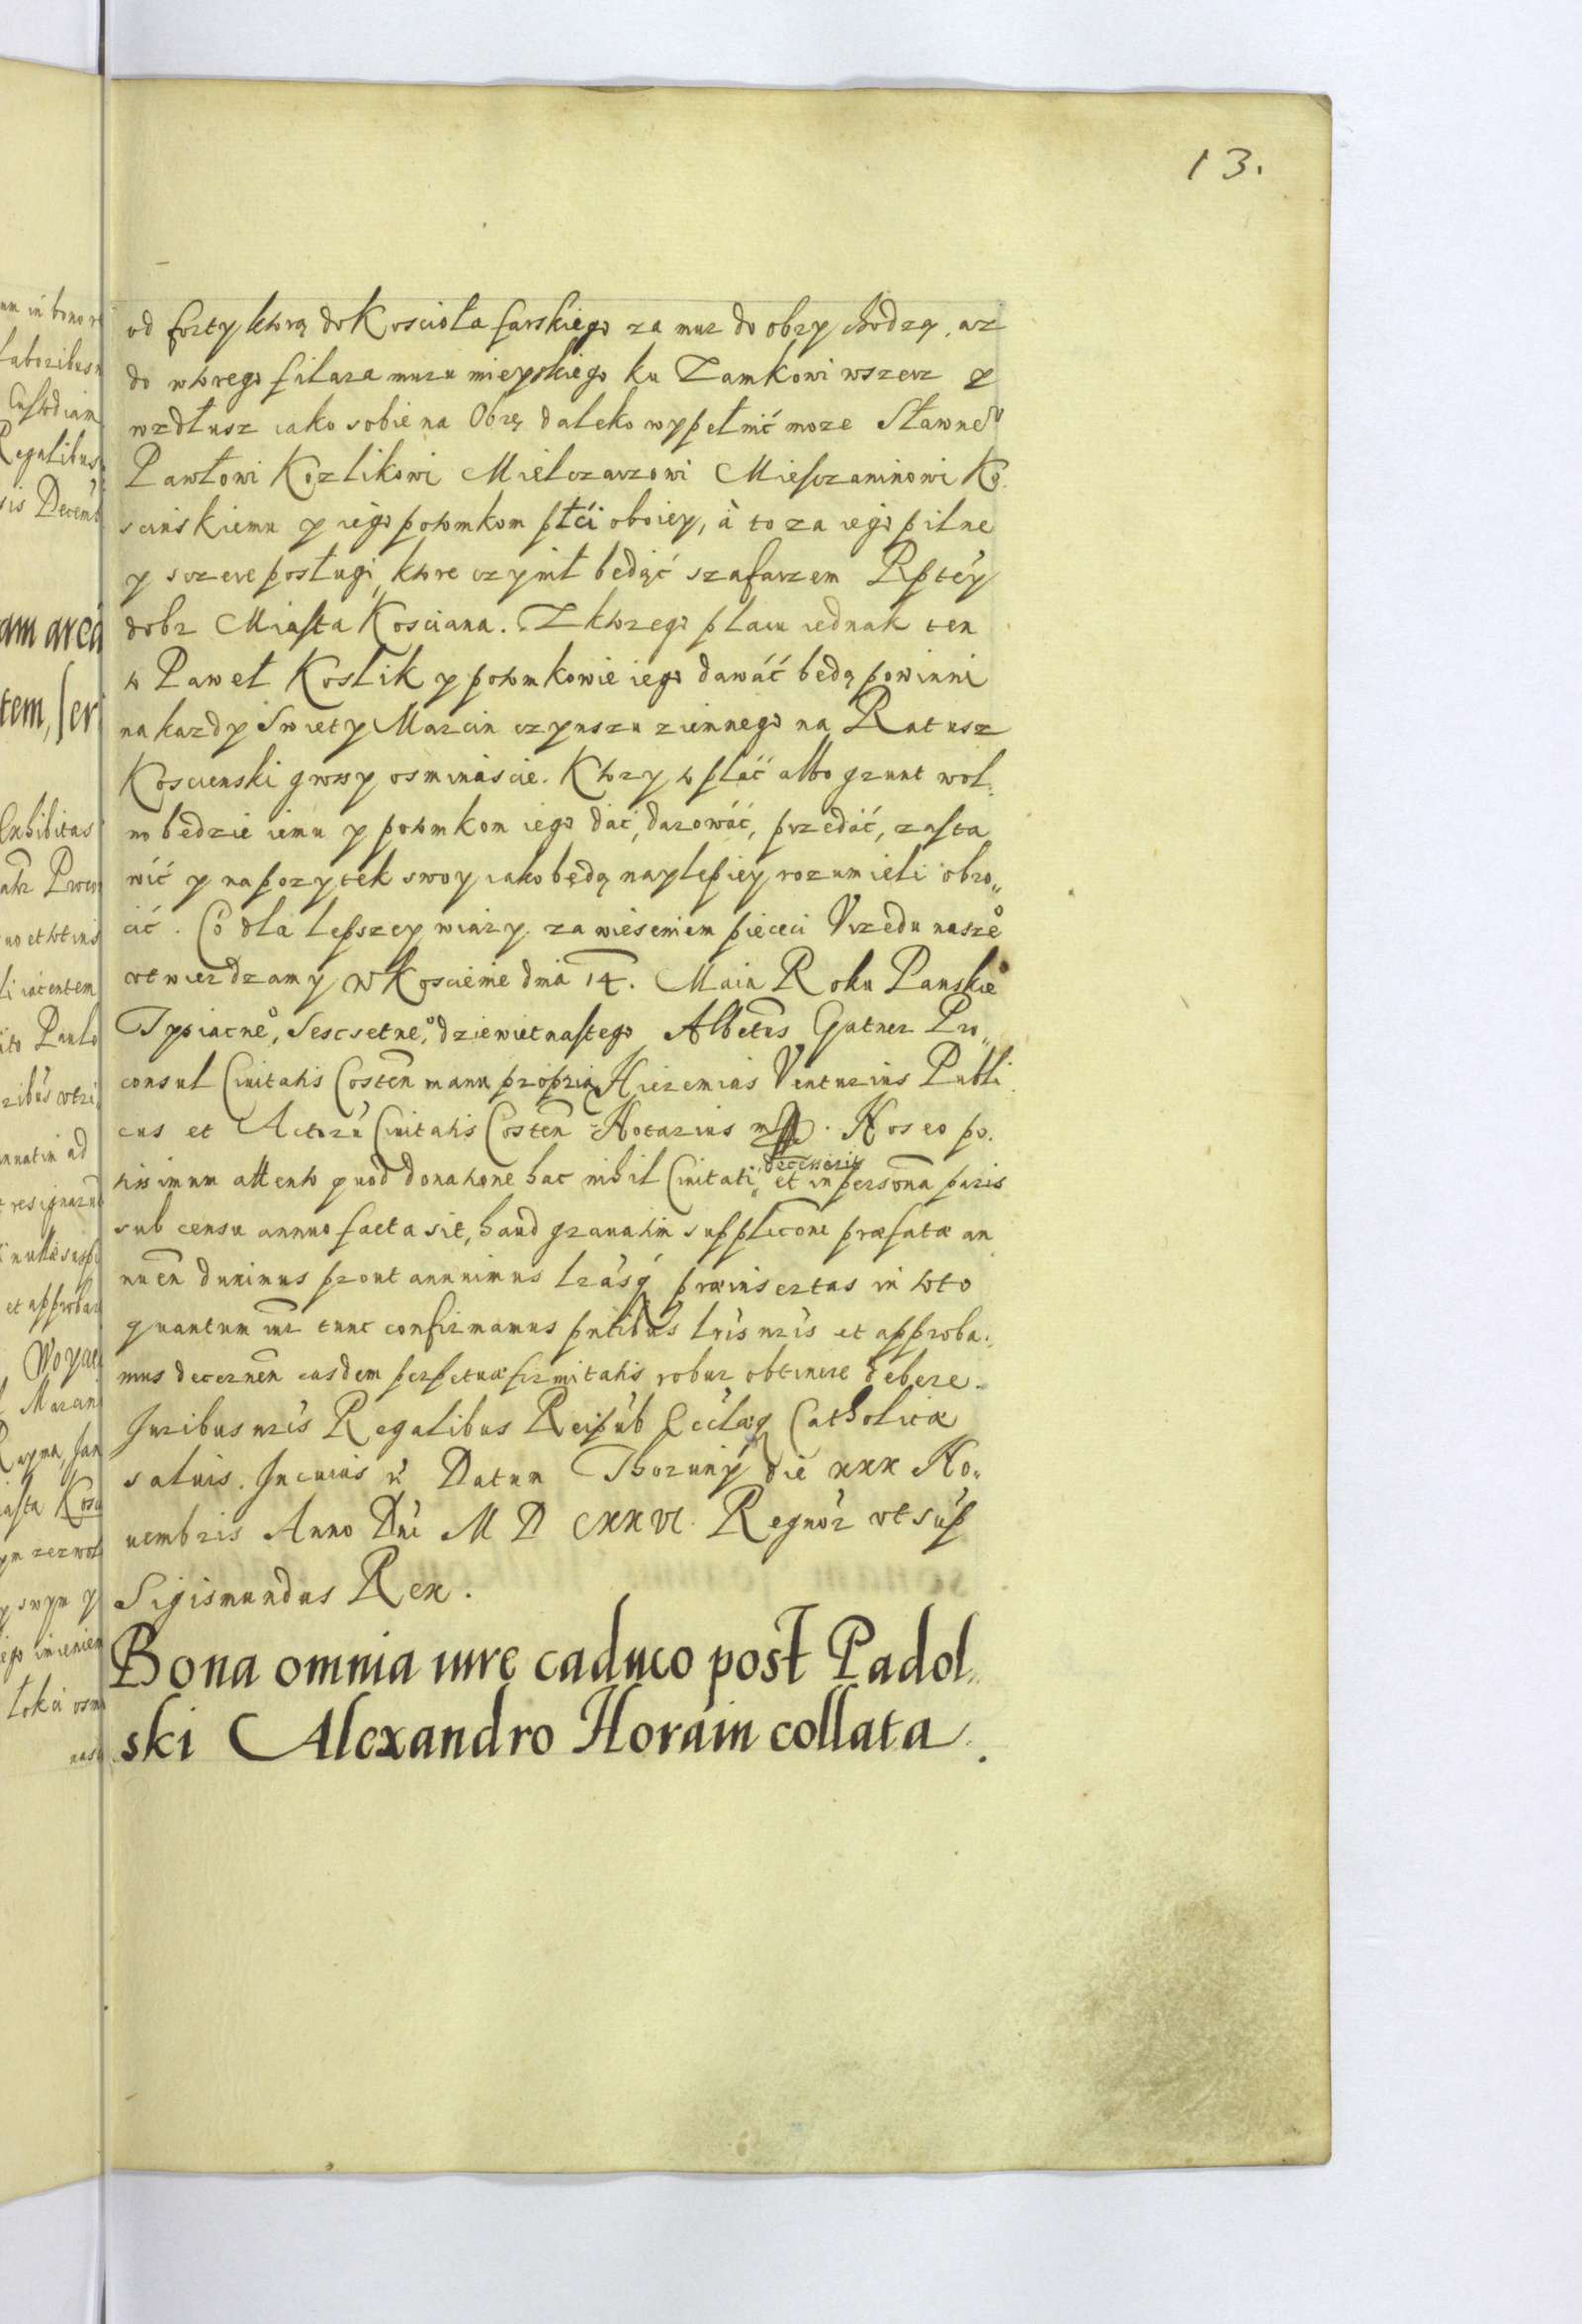 13.
od forty ktorą do Kościoła farskiego za mur do obry chodzą, az
do wtorego filara muru mieyskiego ku Zamkowi wszerz y
wzdłusz iako sobie na Obrę daleko wypełnić moze Sławneᵒ
Pawłowi Kozlikowi Mielczarzowi Miesczaninowi Ko
scinskiemu y iego potomkom płći oboiey, à to za iego pilne
y szczere posługi, ktore czynił będąć szafarzem Rptéy
dobr Miasta Kosciana. Z ktorego placu iednak ten
to Paweł Koslik y potomkowie iego dawáć bedą powinni
na kazdy Swiety Marcin czynszu ziemnego na Ratusz
Koscienski groszy osmnáscie. Ktory to plać albo grunt wol:
no bedzie iemu y potomkom iego dać, darowáć, przedáć, zasta
wić y na pozytek swoy iako będą naylepiey rozumieli obro„
cić. Co dla lepszey wiáry zawieseniem piececi Vrzedu naszeᵒ
vtwierdzamy W Koscienie dnia 14. Maia Roku Panskieᵒ
Tysiacneᵒ, Sescsetneᵒ, dziewietnastego Albertus Gutner Pro„
consul Ciuitatis Costen manu propria Hieremias Venturius Publi
cus et Actorũ Ciuitatis Costen Notarius mp. Nos eo po.
tissimum attento quod donatione hac nihil Ciuitati decesserit et in persona paris
sub censu annuo facta sit, haud grauatim supplicõne præfatæ an
nuen duximus prout annuimus lrásq præinsertas in toto
quantum iur̃ tunc confirmamus pñtibus lrís nrís et approba:
mus decernen easdem perpetuæ firmitatis robur obtinere debere.
Juribus nrís Regalibus Reipúb Ecclæq Catholicæ
saluis. In cuius r̃. Datum Thorunÿ die xxx No„
uembris Anno Dni M D CXXVI. Regnór vt súp
Sigismundus Rex.
Bona omnia iure caduco post Padol„
ski Alexandro Horain collata.